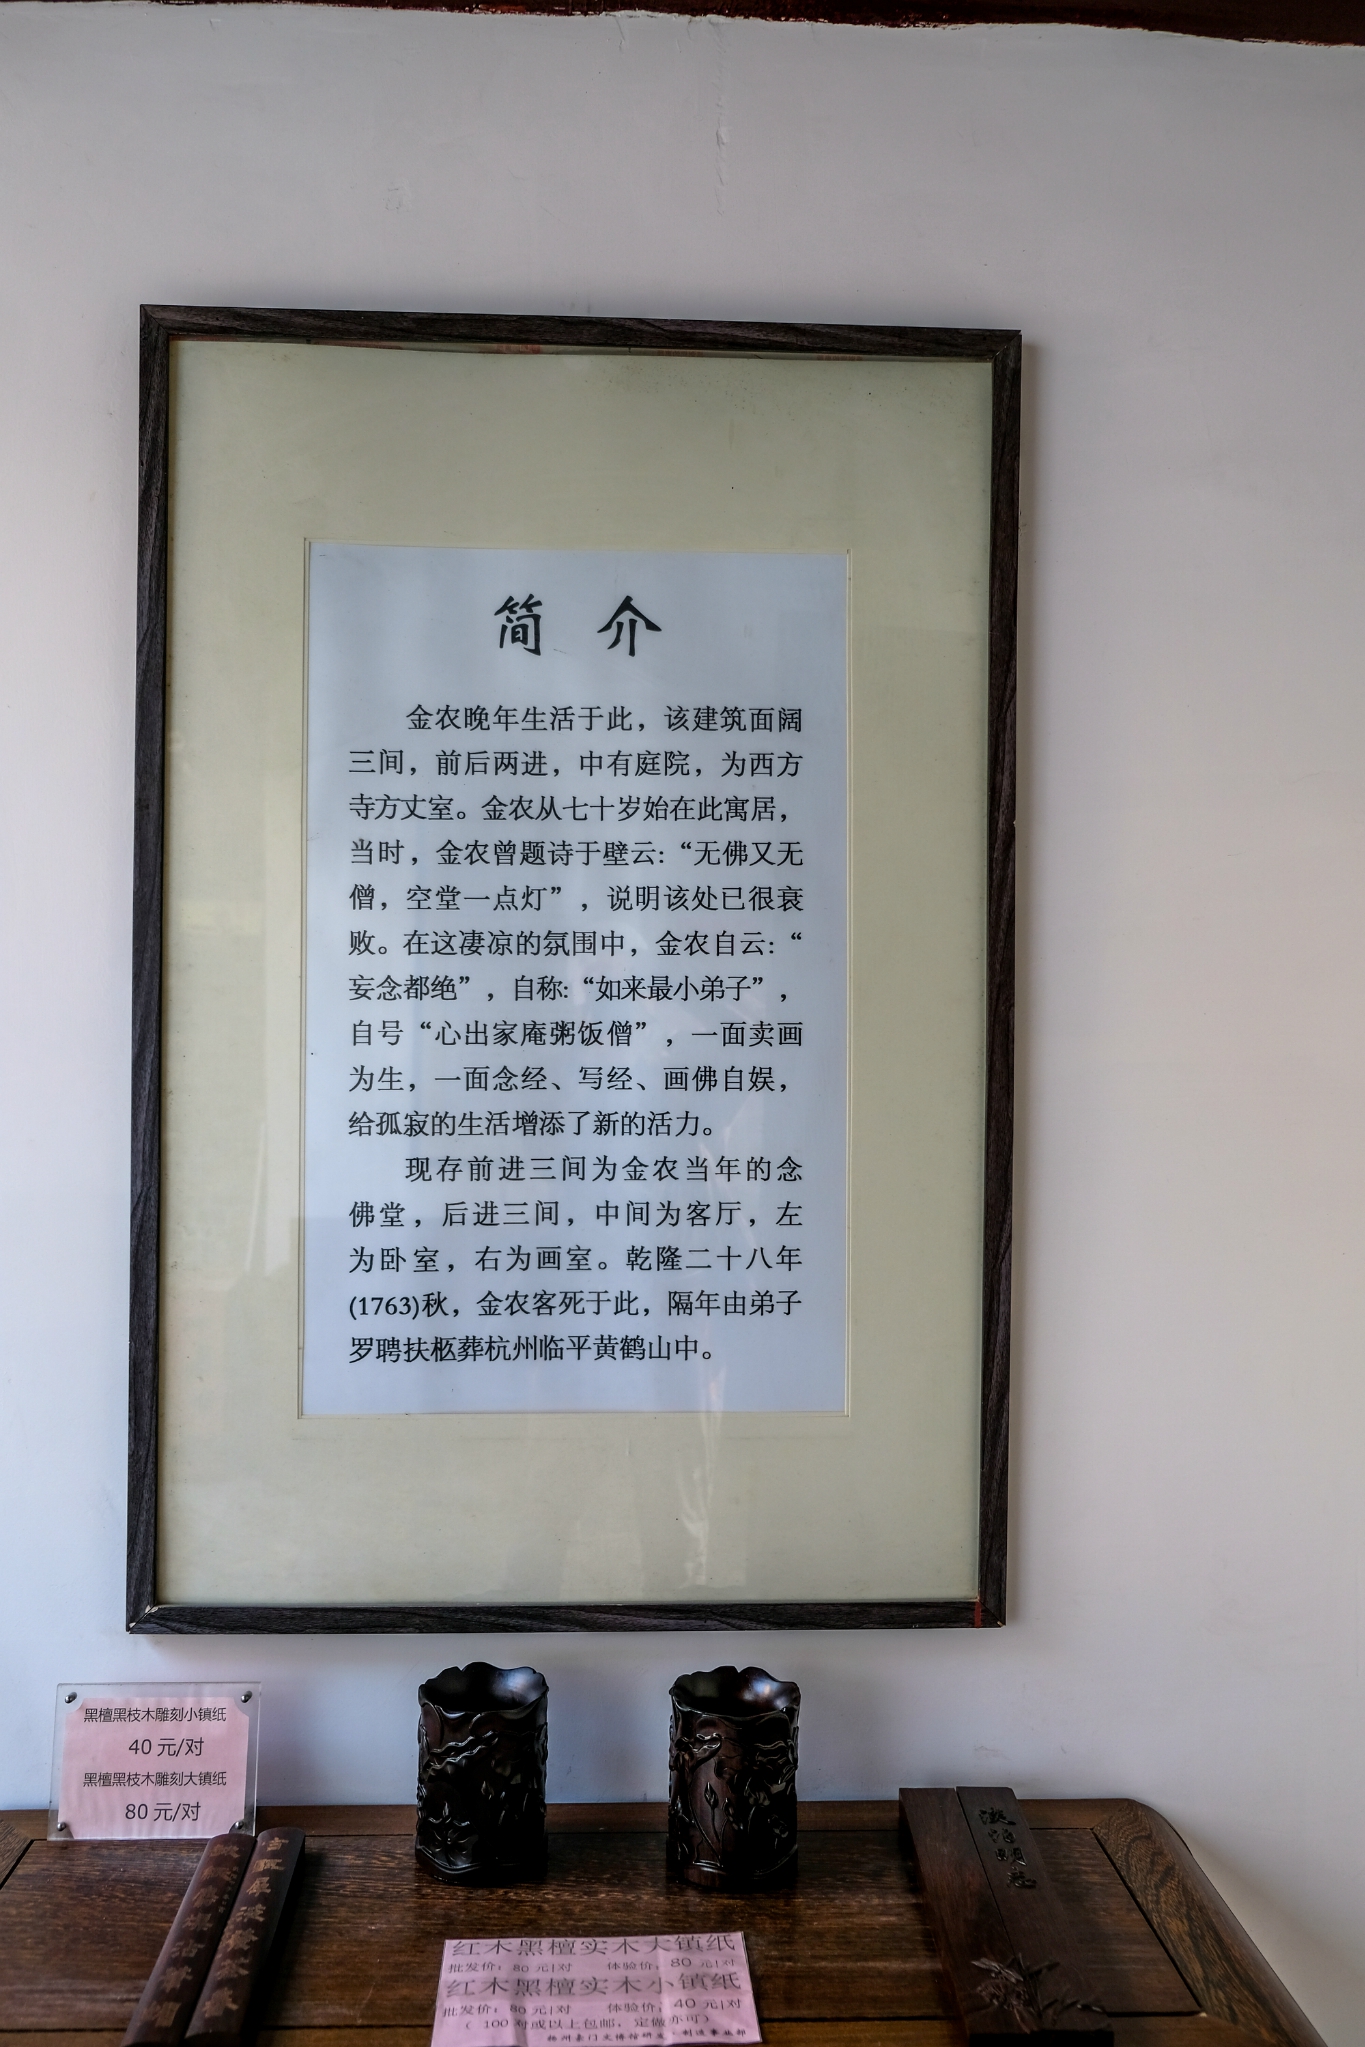 简 介
金农晚年生活于此，该建筑面阔
三间，前后两进，中有庭院，为西方
寺方丈室。金农从七十岁始在此寓居，
当时，金农曾题诗于壁云：“无佛又无
僧，空堂一点灯”，说明该处已很衰
败。在这凄凉的氛围中，金农自云：“
妄念都绝”，自称：“如来最小弟子”，
自号“心出家庵粥饭僧”，一面卖画
为生，一面念经、写经、画佛自娱，
给孤寂的生活增添了新的活力。
现存前进三间为金农当年的念
佛堂，后进三间，中间为客厅，左
为卧室，右为画室。乾隆二十八年
(1763)秋，金农客死于此，隔年由弟子
罗聘扶柩葬杭州临平黄鹤山中。
黑檀黑枝木雕刻小镇纸
40元/对
黑檀黑枝木雕刻大镇纸
80元/对
红木黑檀实木大镇纸
批发价：80元|对 体验价：80元|对
红木黑檀实木小镇纸
批发价：80元|对 体验价：40元|对
（100对或以上包邮，定做亦可）